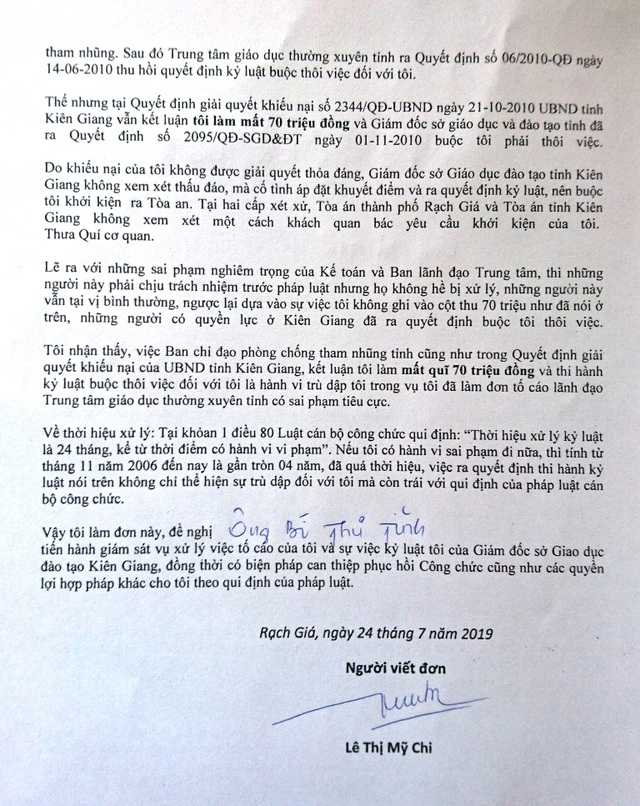 tham nhũng. Sau đó Trung tâm giáo dục thường xuyên tỉnh ra Quyết định số 06/2010-QĐ ngày
14-06-2010 thu hồi quyết định kỷ luật buộc thôi việc đối với tôi.
Thế nhưng tại Quyết định giải quyết khiếu nại số 2344/QĐ-UBND ngày 21-10-2010 UBND tỉnh
Kiên Giang vẫn kết luận tôi làm mất 70 triệu đồng và Giám đốc sở giáo dục và đào tạo tỉnh đã
ra Quyết định số 2095/QĐ-SGD&ĐT ngày 01-11-2010 buộc tôi phải thôi việc.
Do khiếu nại của tôi không được giải quyết thỏa đáng, Giám đốc sở Giáo dục đào tạo tỉnh Kiên
Giang không xem xét thấu đáo, mà cố tình áp đặt khuyết điểm và ra quyết định kỷ luật, nên buộc
tôi khởi kiện ra Tòa an. Tại hai cấp xét xử, Tòa án thành phố Rạch Giá và Tòa án tỉnh Kiên
Giang không xem xét một cách khách quan bác yêu cầu khởi kiện của tôi.
Thưa Quí cơ quan.
Lẽ ra với những sai phạm nghiêm trọng của Kế toán và Ban lãnh đạo Trung tâm, thì những
người này phải chịu trách nhiệm trước pháp luật nhưng họ không hề bị xử lý, những người này
vẫn tại vị bình thường, ngược lại dựa vào sự việc tôi không ghi vào cột thu 70 triệu như đã nói ở
trên, những người có quyền lực ở Kiên Giang đã ra quyết định buộc tôi thôi việc.
Tôi nhận thấy, việc Ban chỉ đạo phòng chống tham nhũng tỉnh cũng như trong Quyết định giải
quyết khiếu nại của UBND tỉnh Kiên Giang, kết luận tôi làm mất quĩ 70 triệu đồng và thi hành
kỷ luật buộc thôi việc đối với tôi là hành vi trù dập tôi trong vụ tôi đã làm đơn tố cáo lãnh đạo
Trung tâm giáo dục thường xuyên tỉnh có sai phạm tiêu cực.
Về thời hiệu xử lý: Tại khỏan 1 điều 80 Luật cán bộ công chức qui định: “Thời hiệu xử lý kỷ luật
là 24 tháng, kể từ thời điểm có hành vi vi phạm”. Nếu tôi có hành vi sai phạm đi nữa, thì tính từ
tháng 11 năm 2006 đến nay là gần tròn 04 năm, đã quá thời hiệu, việc ra quyết định thi hành kỷ
luật nói trên không chỉ thể hiện sự trù dập đối với tôi mà còn trái với qui định của pháp luật cán
bộ công chức.
Vậy tôi làm đơn này, đề nghị Ông Bí Thư Tỉnh
tiến hành giám sát vụ xử lý việc tố cáo của tôi và sự việc kỷ luật tôi của Giám đốc sở Giao dục
đào tạo Kiên Giang, đồng thời có biện pháp can thiệp phục hồi Công chức cũng như các quyền
lợi hợp pháp khác cho tôi theo qui định của pháp luật.
Rạch Giá, ngày 24 tháng 7 năm 2019
Người viết đơn
Lê Thị Mỹ Chi